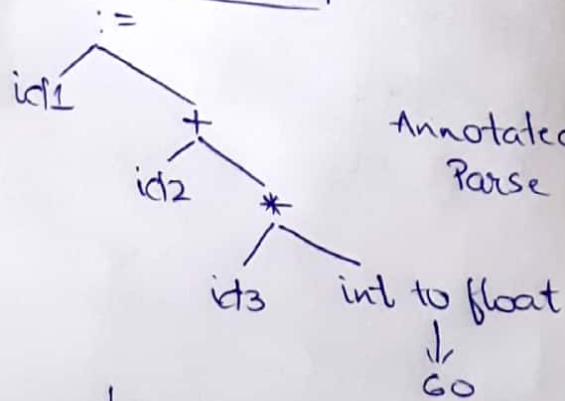 :=
id1
+
Annotated
id2
Parse
*
id3 int to float
60